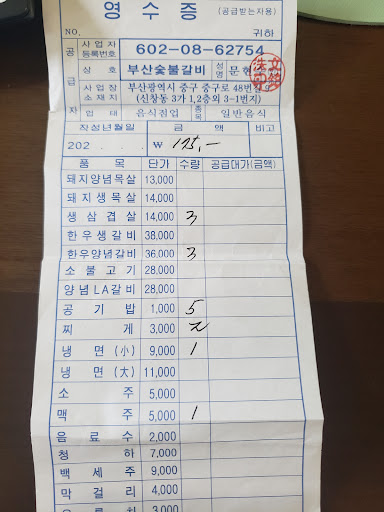 영 수 증 (공급받는자용)
NO. 귀하
공급자
사업자등록번호 602-08-62754
상호 부산숯불갈비 성명 문현
사업장소재지 부산광역시 중구 중구로 48번길
(신창동 3가 1,2층외 3-1번지)
업태 음식점업 종목 일반음식
작성년월일 금 액 비고
202 . . . ₩ 175,-
품 목 단가 수량 공급대가(금액)
돼지양념목살 13,000
돼지생목살 14,000
생삼겹살 14,000 3
한우생갈비 38,000
한우양념갈비 36,000 3
소불고기 28,000
양념LA갈비 28,000
공기밥 1,000 5
찌게 3,000 2
냉면(小) 9,000 1
냉면(大) 11,000
소주 5,000
맥주 5,000 1
음료수 2,000
청하 7,000
백세주 9,000
막걸리 4,000